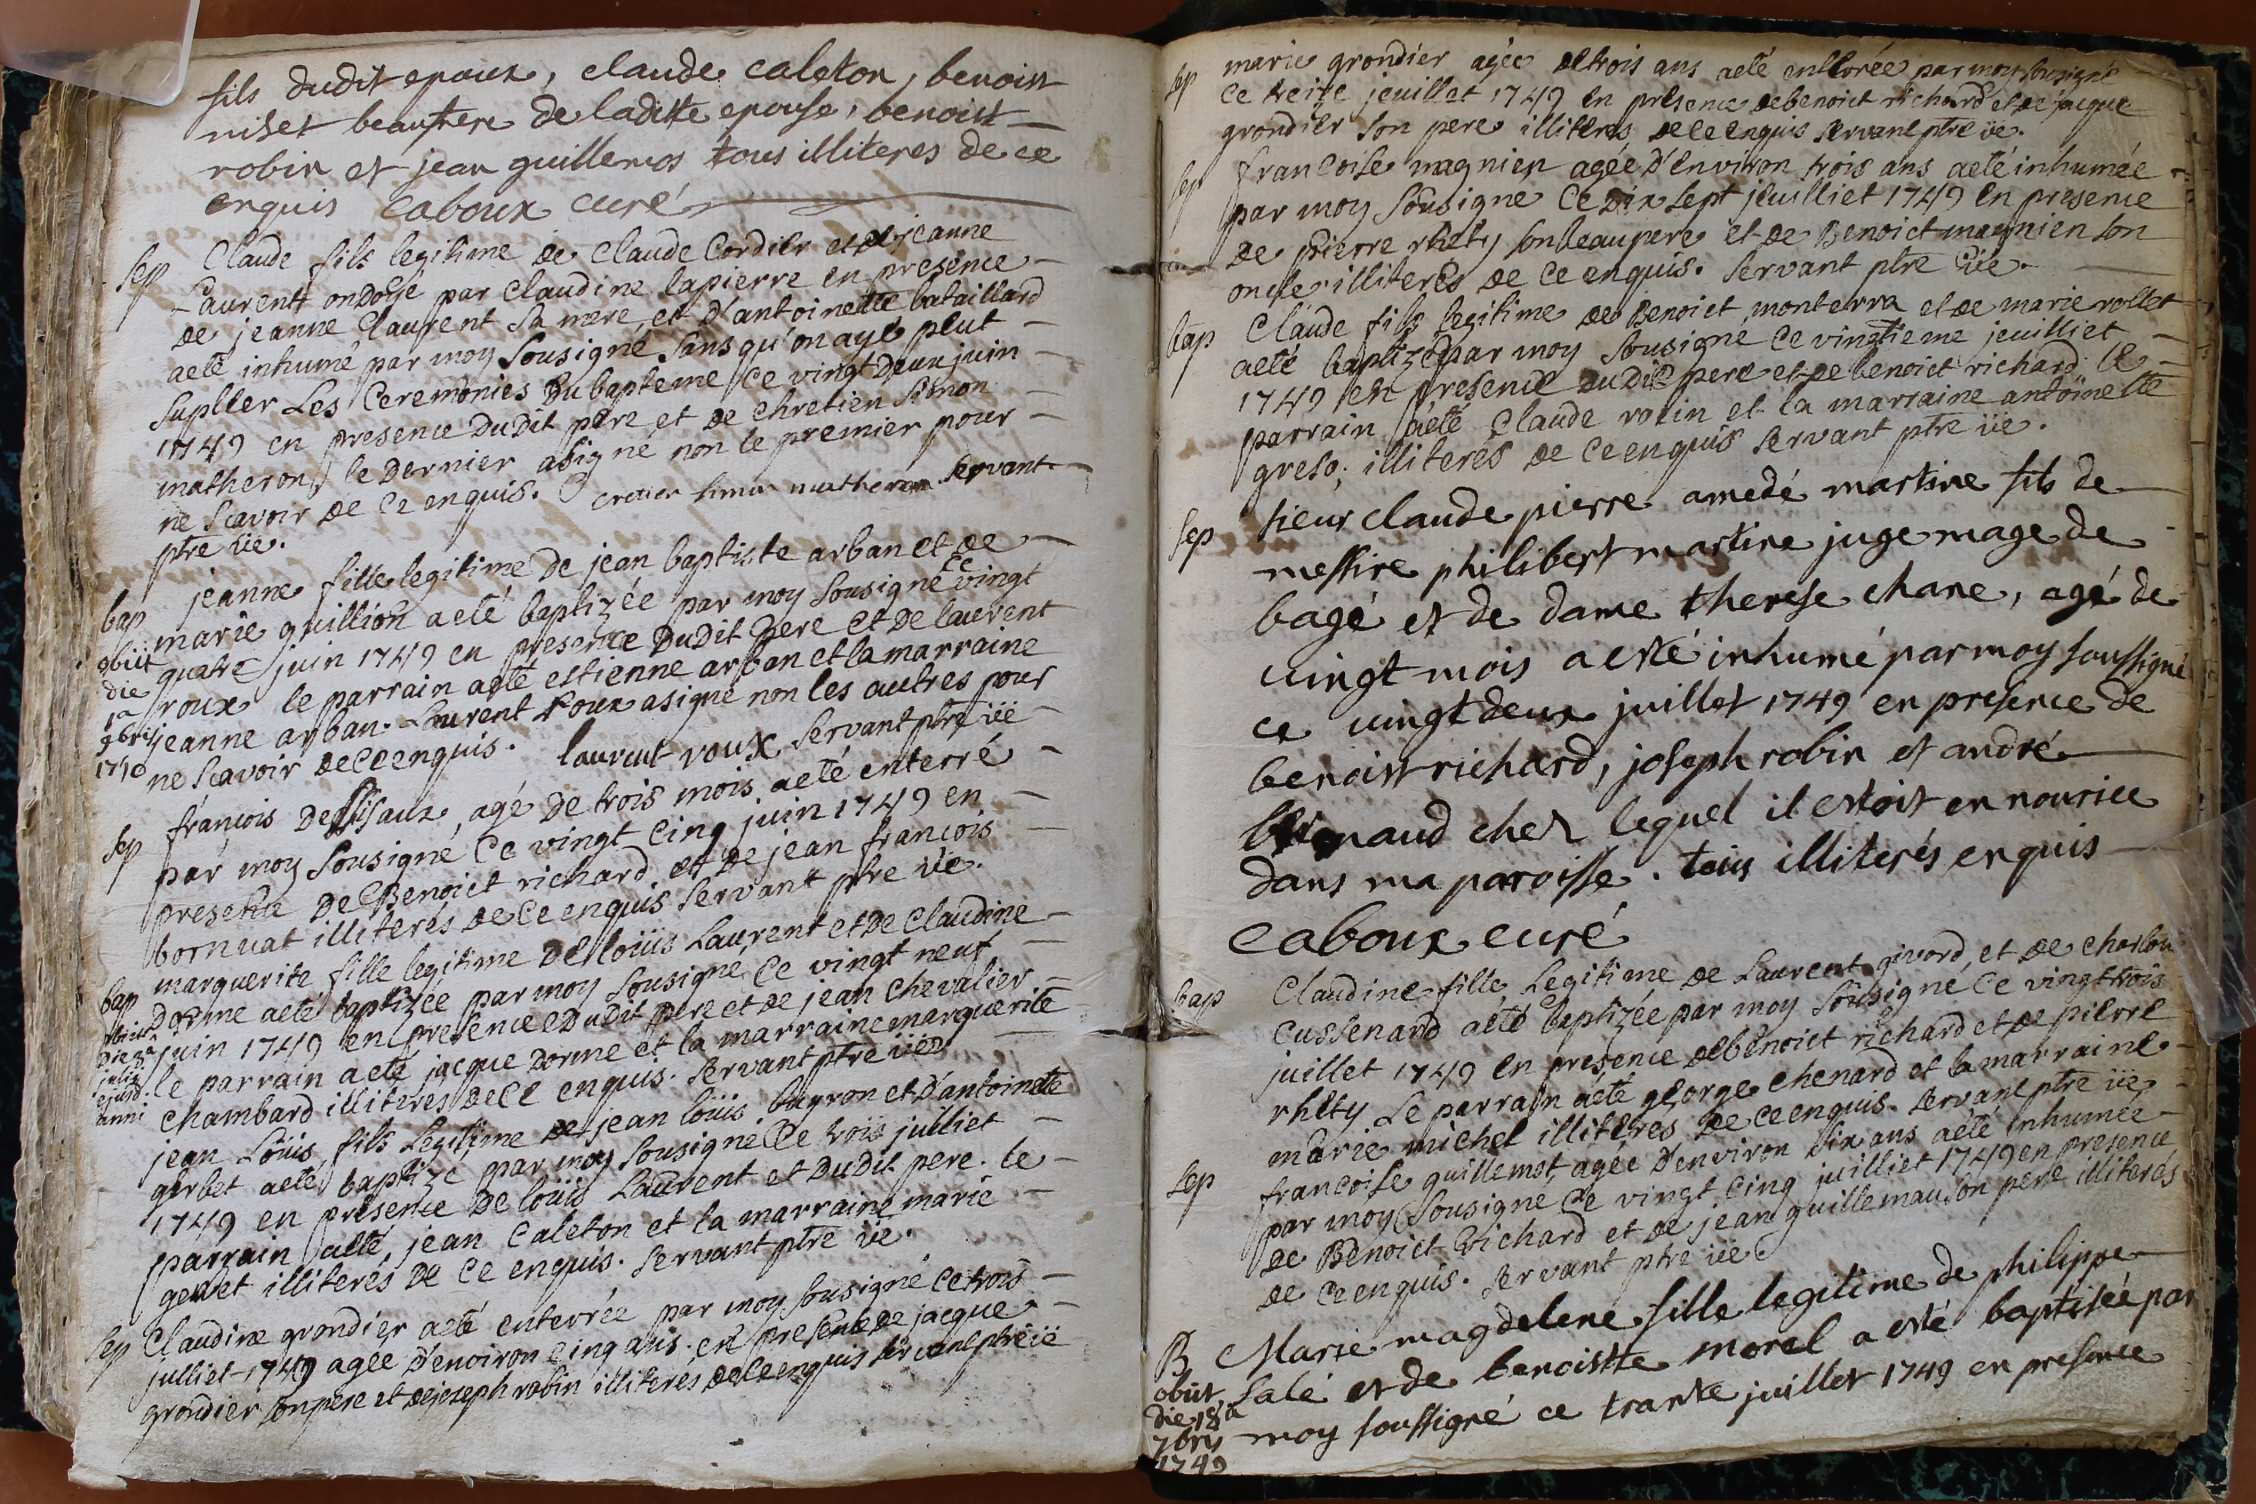 fils dudit epoux, claude caleton, benoist
niset beaufrere de laditte epouse, benoist
robin et jean guillemos tous illiteres de ce
enquis Caboux curé
sep Claude fils legitime de Claude Cordier et de jeanne
Laurent ondoyé par Claudine lapierre en presence
de jeanne Claurent sa mere, et d'antoinette bataillard
aeté inhumé par moy sousigné, sans qu'on aye plut
supller Les Ceremonies Du bapteme Ce vingt Deux juin
1749 en presence DuDit pere et de Chretien simon
matheron, le Dernier asigné non le premier pour
ne scavoir De Ce enquis. cretien simon matheron servant
ptre vie.
bap jeanne fille legitime De jean baptiste arban et de
marie guillion aeté baptizée par moy sousigné ce vingt
obiit quatre juin 1749 en presence DuDit pere et De laurent
die roux le parrain aeté estienne arban et la marraine
1a 9bris jeanne arban. Laurent Roux asigné non les autres pour
1740 ne scavoir de Ce enquis. laurent roux servant ptre vie
sep françois Deſſisaux, agé De trois mois aeté enterré
par moy sousigné Ce vingt Cinq juin 1749 en
presence De Benoict richard et de jean françois
bornuat illiterés de Ce enquis servant ptre vie.
bap marguerite fille legitime De loüis Laurent et De Claudine
obiit dorme aeté baptizée par moy sousigné Ce vingt neuf
die 3a juin 1749 en presence DuDit pere et de jean Chevalier
julii le parrain aeté jacque Dorme et la marraine marguerite
ejusd. anni Chambard illiteres de Ce enquis. servant ptre vie
jean Loüis fils Legitime de jean loüis buyron et D'antoinette
gerbet aeté baptizé par moy sousigné Ce trois julliet
1749 en presence De loüis Laurent et DuDit pere. le
parrain aeté, jean Caleton et la marraine marie
genet illiterés De Ce enquis. servant ptre vie.
sep Claudine grondier aeté enterrée par moy sousigné Ce trois
julliet 1749 agée D'environ cinq ans. en presence de jacque
grondier son pere et de joseph robin illiterés de Ce enquis servant ptre vie
sep marie grondier agée de trois ans aeté enterée par moy sousigné
Ce treize jeuillet 1749 en presence de benoict richard et de jacque
grondier son pere illiteres de Ce enquis servant ptre vie.
sep francoise magnien agée d'environ trois ans aeté inhumée
par moy sousigné Ce Dix sept jeuilliet 1749 en presence
de pierre rhety son beaupere et de Benoict magnien son
oncle illiterés de Ce enquis. servant ptre vie.
bap Claude fils legitime de Benoict monterra et de marie rollet
aeté baptizé par moy sousigné Ce vingtieme jeuilliet
1749 en presence du Dit pere et de benoict richard le
parrain aeté Claude robin et la marraine antoinette
greso; illiterés de Ce enquis servant ptre vie.
sep sieur claude pierre amedé martine fils de
messire philibert martine juge mage de
bagé et de dame therese chane, agé de
vingt mois a esté inhumé par moy soussigné
ce vingt deux juillet 1749 en presence de
benoist richard, joseph robin et andré
naud chez lequel il estoit en nourice
dans ma paroisse. tous illiterés enquis
Caboux curé
bap Claudine fille Legitime de Laurent givord et de Charlou
Cussenard aeté baptizée par moy sousigné, Ce vingt trois
juillet 1749 en presence de benoict richard et de pierre
rhety Le parrain aété george Chenard et la marraine
marie michel illiteres de Ce enquis. servant ptre vie
sep francoise guillemot, agée D'environ dix ans aété inhumée
par moy sousigné Ce vingt Cinq juilliet 1749 en presence
de Benoict Richard et de jean guillemau son pere illiterés
de Ce enquis. servant ptre vie
B Marie magdelene fille legitime de philippe
obiit salé et de benoistte morel a esté baptisée par
die 18a moy soussigné ce trante juillet 1749 en presence
7bris
1749